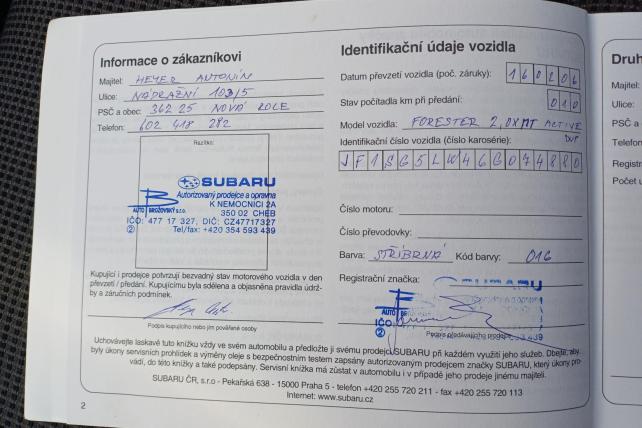 Informace o zákazníkovi
Majitel: HEYER ANTONÍN
Ulice: NÁDRAŽNÍ 103/5
PSČ a obec: 362 25 NOVÁ ROLE
Telefon: 602 418 282
Razítko:
SUBARU
Autorizovaný prodejce a opravna
K NEMOCNICI 2A
350 02 CHEB
AUTO BROŽOVSKÝ s.r.o.
IČO: 477 17 327, DIČ: CZ47717327
② Tel/fax: +420 354 593 439
Kupující i prodejce potvrzují bezvadný stav motorového vozidla v den
převzetí / předání. Kupujícímu byla sdělena a objasněna pravidla údrž-
by a záručních podmínek.
Podpis kupujícího nebo jím pověřené osoby
Identifikační údaje vozidla
Datum převzetí vozidla (poč. záruky): 160206
Stav počítadla km při předání: 010
Model vozidla: FORESTER 2,0X MT ACTIVE
Identifikační číslo vozidla (číslo karosérie):
JF1SG5LW46G074880
Číslo motoru:
Číslo převodovky:
Barva: STŘÍBRNÁ Kód barvy: 016
Registrační značka:
SUBARU
AUTO
IČO
②
Podpis předávajícího prodejce
Uchovávejte laskavě tuto knížku vždy ve svém automobilu a předložte ji svému prodejci SUBARU při každém využití jeho služeb. Dbejte, aby
byly úkony servisních prohlídek a výměny oleje s bezpečnostním testem zapsány autorizovaným prodejcem značky SUBARU, který úkony pro-
vádí, do této knížky a také podepsány. Servisní knížka má zůstat v automobilu i v případě jeho prodeje jinému majiteli.
SUBARU ČR, s.r.o - Pekařská 638 - 15000 Praha 5 - telefon +420 255 720 211 - fax +420 255 720 113
Internet: www.subaru.cz
2
Druh
Majitel:
Ulice:
PSČ a
Telefon
Registr
Počet u